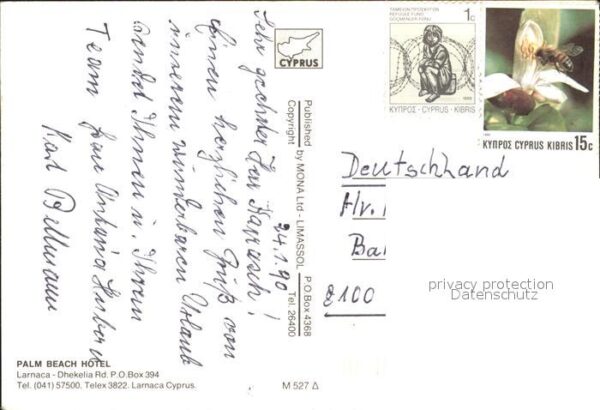 TAMEION ΠΡΟΣΦΥΓΩΝ
REFUGEE FUND
GÖÇMENLER FONU
1c
ΚΥΠΡΟΣ - CYPRUS - KIBRIS
ΚΥΠΡΟΣ CYPRUS KIBRIS 15c
CYPRUS
Published by MONA Ltd - LIMASSOL P.O.Box 4368
Copyright Tel. 26400
24.1.90
Sehr geehrter Herr
Einen herzlichen Gruß von
unserem wunderbaren Urlaub
sendet Ihnen u. Ihrem
Team
Karl
Deutschland
Hr.
Ba
8100
privacy protection
Datenschutz
PALM BEACH HOTEL
Larnaca - Dhekelia Rd. P.O.Box 394
Tel. (041) 57500. Telex 3822. Larnaca Cyprus.
M 527 Δ